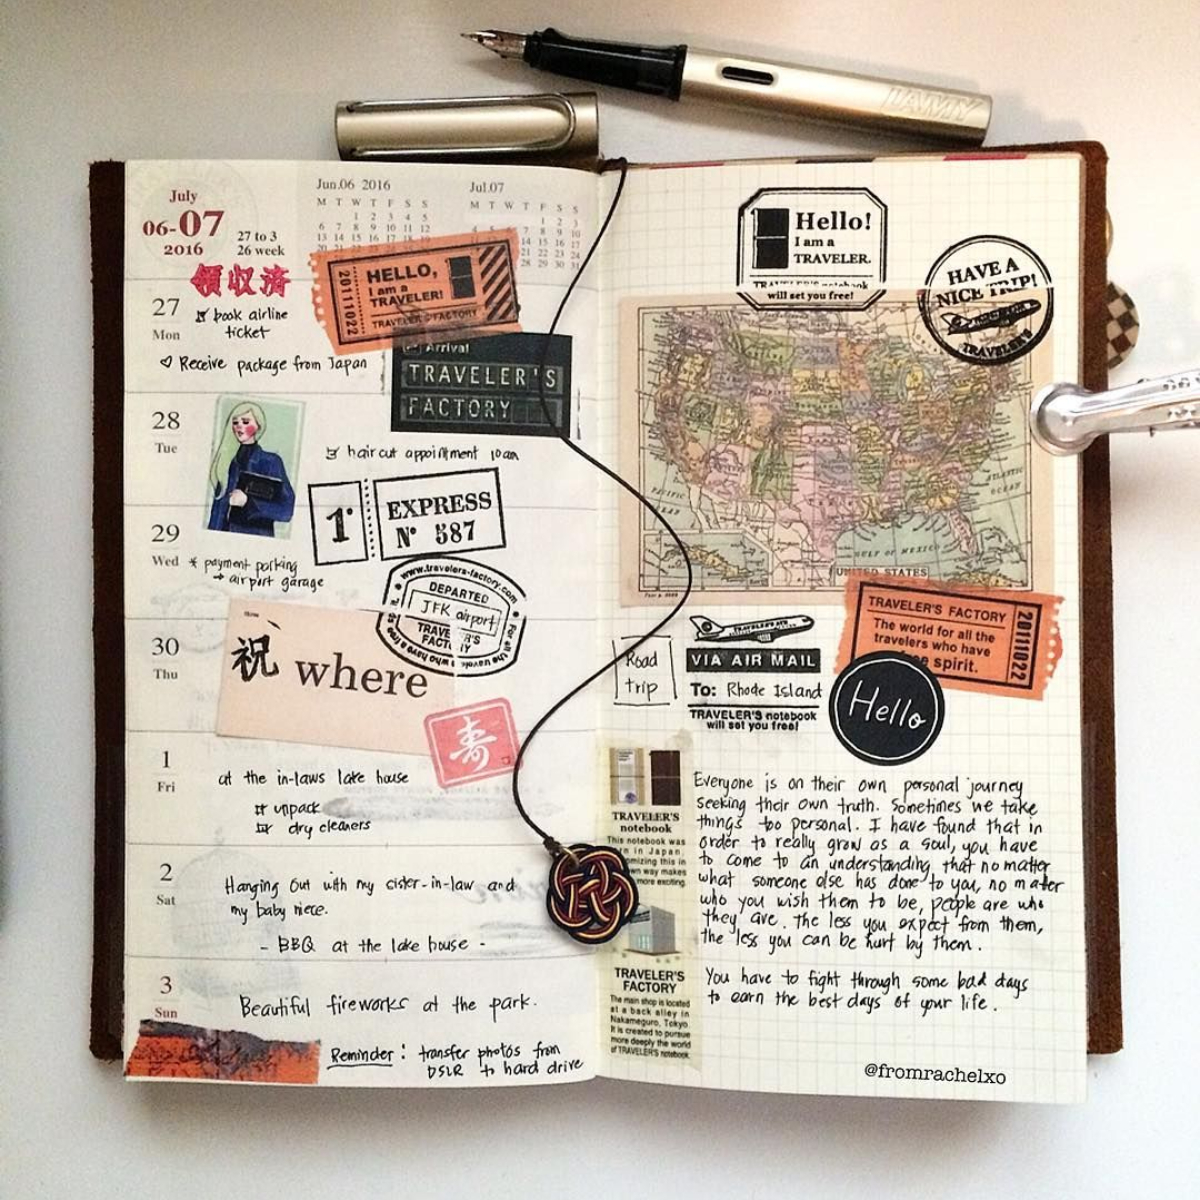 LAMY
July
06-07
2016
27 to 3
26 week
Jun.06 2016
M T W T F S S
1 2 3 4 5
6 7 8 9 10 11 12
13 14 15 16 17 18 19
Jul.07
M T W T F S S
1 2 3
領収済
HELLO,
I am a
TRAVELER!
TRAVELER'S FACTORY
20111022
27
Mon
book airline
ticket
Receive package from Japan
Arrival
TRAVELER'S
FACTORY
28
Tue
haircut appointment 10am
1
EXPRESS
Nº 587
29
Wed
* payment parking
→ airport garage
www.travelers-factory.com
DEPARTED
JFK airport
TRAVELER'S
FACTORY
30
Thu
祝 where
寿
1
Fri
at the in-laws lake house
unpack
dry cleaners
2
Sat
Hanging out with my sister-in-law and
my baby niece.
- BBQ at the lake house -
3
Sun
Beautiful fireworks at the park.
Reminder: transfer photos from
DSLR to hard drive
Hello!
I am a
TRAVELER.
TRAVELER'S notebook
will set you free!
HAVE A
NICE TRIP!
TRAVELER'S
PACIFIC
ATLANTIC
OCEAN
GULF OF MEXICO
UNITED STATES
TRAVELER'S FACTORY
The world for all the
travelers who have
free spirit.
20111022
Road
trip
VIA AIR MAIL
To: Rhode Island
TRAVELER'S notebook
will set you free!
Hello
TRAVELER'S
notebook
This notebook was
in Japan,
in
way makes
more exciting.
TRAVELER'S
FACTORY
The main shop is located
at a back alley in
Nakameguro, Tokyo.
It is created to pursue
more deeply the world
of TRAVELER'S notebook.
Everyone is on their own personal journey
seeking their own truth. Sometimes we take
things too personal. I have found that in
order to really grow as a soul, you have
to come to an understanding that no matter
what someone else has done to you, no matter
who you wish them to be, people are who
they are. The less you expect from them,
the less you can be hurt by them.
You have to fight through some bad days
to earn the best days of your life.
@fromrachelxo